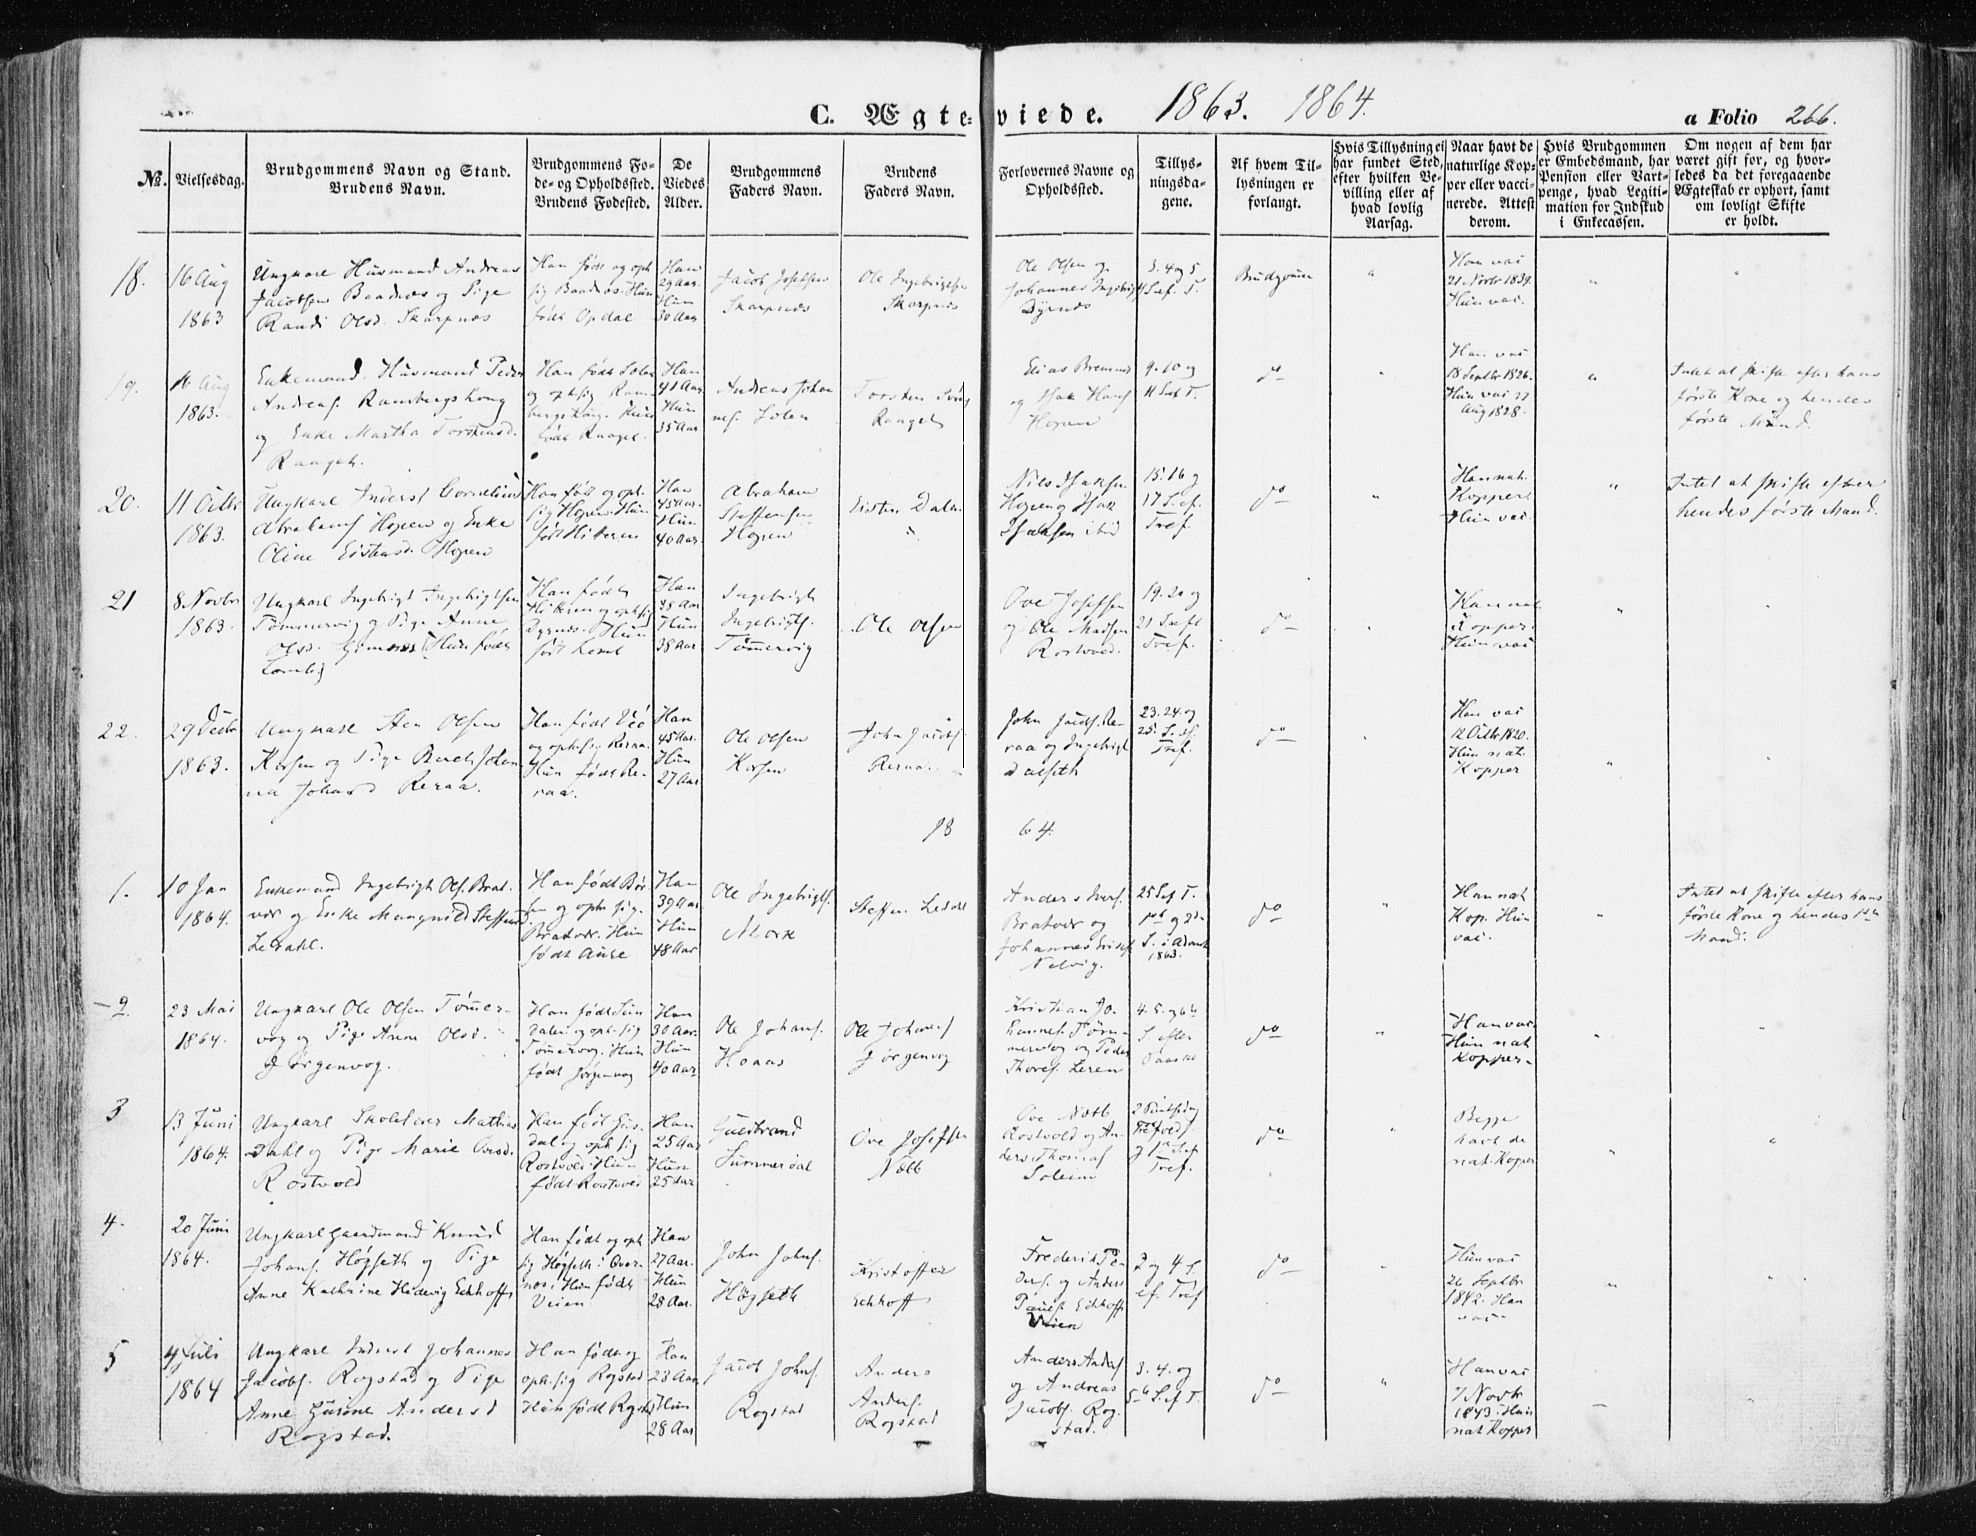 C. Ægteviede. 1863. 1864.
a Folio 266.
No.
Vielsesdag.
Brudgommens Navn og Stand.
Brudens Navn.
Brudgommens Fø-
de- og Opholdssted.
Brudens Fødested.
De
Viedes
Alder.
Brudgommens
Faders Navn.
Brudens
Faders Navn.
Forlovernes Navne og
Opholdssted.
Tillys-
ningsda-
gene.
Af hvem Til-
lysningen er
forlangt.
Hvis Tillysning ei
har fundet Sted,
efter hvilken Be-
villing eller af
hvad lovlig
Aarsag.
Naar havt de
naturlige Kop-
per eller vacci-
nerede. Attest
derom.
Hvis Brudgommen
er Embedsmand, har
Pension eller Vart-
penge, hvad Legiti-
mation for Indskud
i Enkecassen.
Om nogen af dem har
været gift før, og hvor-
ledes da det foregaaende
Ægteskab er ophørt, samt
om lovligt Skifte
er holdt.
18.
16 Aug
1863
Ungkarl Husmand Andreas
Jacobsen Baadnes og Pige
Randi Olsd. Skarpnes
Han født og oph
sig Baadnes. Hun
født Opdal
Han
29 Aar.
Hun
30 Aar
Jacob Josefsen
Skarpnes
Ole Ingebrigtsen
Skarpnes
Ole Olsen og
Johannes Ingebrigt
Dyrnes
3. 4 og 5
S ef. T.
Brudgommen
"
Han vac
21 Novbr 1839.
Hun vac.
"
"
19.
16 Aug
1863.
Enkemand Husmand Peder
Andreas. Ramsbergshoug
og Enke Martha Torstensd.
Raaget.
Han født Solem
og oph sig Ram
bergshaug. Hun
født Raaget.
Han
41 Aar
Hun
35 Aar
Andreas Johan
nes. Solem
Torsten
Raaget
Elias Bremnes
og Isak Hans
Hopen
9. 10 og
11 S ef T.
do
"
Han vac
18 Septbr 1826.
Hun vac 27
Aug 1828.
"
Intet at skifte efter hans
første Kone og hendes
første Mand.
20.
11 Octbr
1863.
Ungkarl Inderst Cornelius
Abrahams Hopen og Enke
Oline Eistensd. Hopen
Han født og oph.
sig Hopen. Hun
født Hitteren
Han
45 Aar.
Hun
40 Aar.
Abraham
Steffensen
Hopen
Eisten Dalen
"
Nils Isaksen
Hopen og Isak
Isaksen ibid
15. 16 g
17 S. ef.
Tref.
do
"
Han nat.
Kopper.
Hun vac.
"
Intet at skifte efter
hendes første Mand.
21
8 Novbr
1863.
Ungkarl Ingebrigt Ingebrigtsen
Tømmervig og Pige Anne
Olsd. Gimnes (Hun født
Lomb)
Han født
Hitteren og oph sig
Dyrnes. Hun
født Lomb
Han
38 Aar
Hun
38 Aar
Ingebrigt
Ingebrigts.
Tømmervig
Ole Olsen
Ove Josefsen
og Ole Madsen
Rostvold.
19. 20 og
21 S ef
Tref.
do
"
Han nat
Kopper.
Hun vac
"
"
22.
29 Decbr
1863.
Ungkarl Sten Olsen
Korsen og Pige Beret Johan
na Johansd Reraa.
Han født Veø
og oph sig Reraa.
Hun født Re-
raa.
Han
45 Aar.
Hun
27 Aar
Ole Olsen
Korsen
John Jacobs.
Reraa.
John Jacobs. Re-
raa og Ingebrigt
Dalseth
23. 24 og
25 S. ef.
Tref.
do
"
Han vac
12 Octbr 1820.
Hun nat.
Kopper
"
"
18 64.
1.
10 Jan
1864.
Enkemand Ingebrigt Ols. Brat-
vær og Enke Mangnild Steffensd
Lesdahl.
Han født Bør-
sen og oph sig.
Bratvær. Hun
født Aure
Han
39 Aar
Hun
48 Aar
Ole Ingebrigts.
Mork
Steffen Lesdal
Anders Ivers.
Bratvær og
Johannes
Nelvig.
25 S ef T.
1st og 2den
S. i Advent
1863.
do
"
Han nat
Kop. Hun
vac.
"
Intet at skifte efter hans
første Kone og hendes 1ste
Mand.
2.
23 Mai
1864.
Ungkarl Ole Olsen Tømmer-
vog og Pige Anne Olsd.
Jørgenvog.
Han født Sun
dalen og oph. sig
Tømmervog. Hun
født Jørgenvog
Han
30 Aar.
Hun
40 Aar
Ole Johans.
Hoaas
Ole Johans
Jørgenvog
Kristian Jo-
hannes. Tøm-
mervog og Peder
Thores. Leren
4. 5. og 6te
S. efter
Paaske
do
"
Han vac.
Hun nat
Kopper.
"
"
3
13 Juni
1864.
Ungkarl Skolelærer Mathias
Dahl og Pige Marie Ovesd.
Rostvold
Han født Sus-
dal og oph sig
Rostvold. Hun
født Rostvold
Han
25 Aar
Hun
25 Aar
Gulbrand
Summerdal
Ove Josefsen
Nætt
Ove Nætt
Rostvold og An-
ders Thomas
Soleim
2 Pintsedag
og 1ste S ef
Tref.
do
"
Begge
havt de
nat. Kopper
"
"
4.
20 Juni
1864.
Ungkarl Gaardmand Knud
Johans. Høgseth og Pige
Anne Kathrine Hedevig Eckhoff
Han født og oph
sig Høgseth i Øver-
næs. Hun født
Veien
Han
27 Aar.
Hun
28 Aar.
John Johns.
Høgseth
Kristoffer
Eckhoff
Frederik Pe-
ders. og Anders
Pauls. Eckhoff
Veien
2 og 4 S.
ef. Tref
do
Hun vac
26 Septbr
1842. Han
vac
"
"
5
4 Juli
1864
Ungkarl Inderst Johannes
Jacobs. Rogstad og Pige
Anne Gurine Andersd
Rogstad.
Han født og
oph. sig Rogstad
Hun født Rogstad
Han
23 Aar
Hun
28 Aar
Jacob Johns.
Rogstad
Anders
Anders.
Rogstad
Anders Anders
og Andreas
Jacobs. Rog
stad.
3. 4. og
5te S. ef T.
do
"
Han vac
7 Novbr
1843. Hun
nat Kopper
"